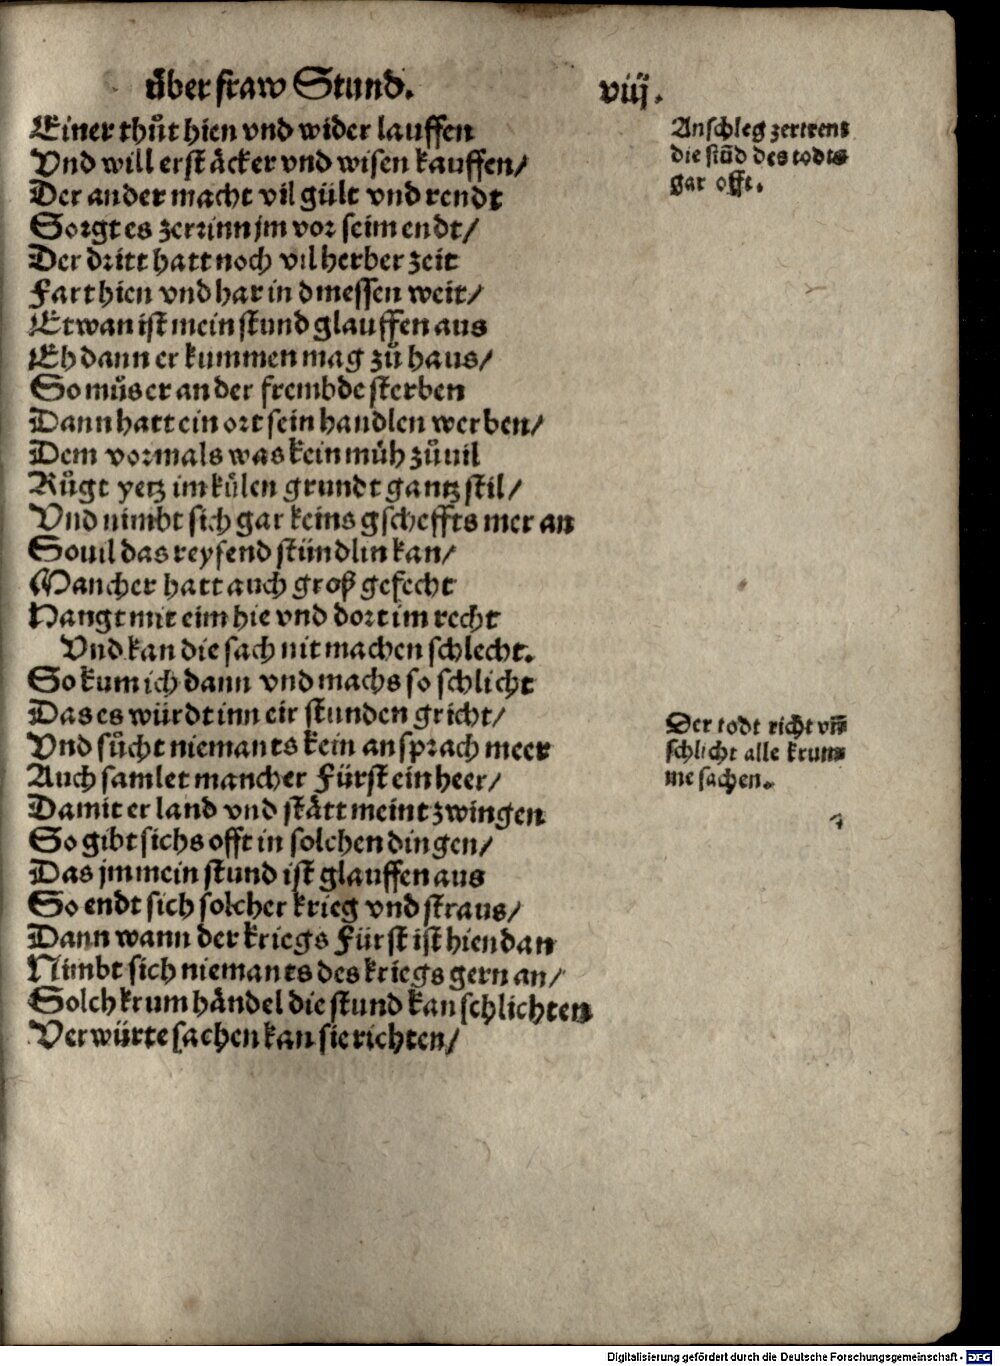 über fraw Stund.
viij.
Einer thůt hien vnd wider lauffen
Vnd will erst äcker vnd wisen kauffen/
Der ander macht vil gült vnd rendt
Sorgt es zerrinn jm vor seim endt/
Der dritt hatt noch vil herber zeit
Fart hien vnd har in d messen weit/
Etwan ist mein stund glauffen aus
Eh dann er kummen mag zů haus/
So můs er an der frembde sterben
Dann hatt ein ort sein handlen werben/
Dem vormals was kein müh zůuil
Růgt yetz im külen grundt gantz stil/
Vnd nimbt sich gar keins gscheffts mer an
Souil das reysend stündlin kan/
Mancher hatt auch groß gefecht
Hangt mit eim hie vnd dort im recht
Vnd kan die sach nit machen schlecht.
So kum ich dann vnd machs so schlicht
Das es würdt inn eir stunden gricht/
Vnd sůcht niemants kein ansprach meer
Auch samlet mancher Fürst ein heer/
Damit er land vnd stätt meint zwingen
So gibt sichs offt in solchen dingen/
Das jm mein stund ist glauffen aus
So endt sich solcher krieg vnd straus/
Dann wann der kriegs Fürst ist hiendan
Nimbt sich niemants des kriegs gern an/
Solch krum händel die stund kan schlichten
Verwürte sachen kan sie richten/
Anschleg zertrent
die stũd des todts
gar offt.
Der todt richt vñ
schlicht alle krum
me sachen.
Digitalisierung gefördert durch die Deutsche Forschungsgemeinschaft - DFG